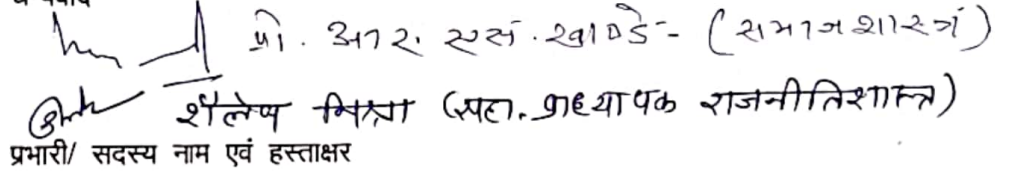 प्रो. आर. एस. खाण्डे - (समाजशास्त्र)
शैलेष मिश्रा (सहा. प्राध्यापक राजनीतिशास्त्र)
प्रभारी/ सदस्य नाम एवं हस्ताक्षर